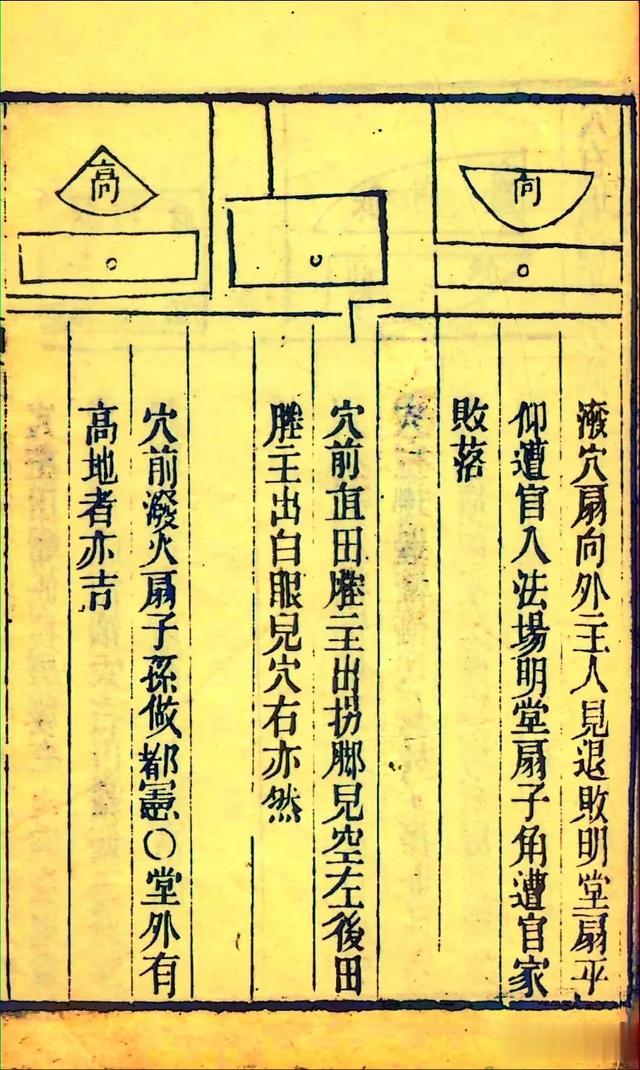 向
高
潑穴扇向外主人見退敗明堂扇平
仰遭官入法場明堂扇子角遭官家
敗落
穴前直田塍主出拐脚見空左後田
塍主出白眼見穴右亦然
穴前潑火扇子孫做都憲〇堂外有
高地者亦吉